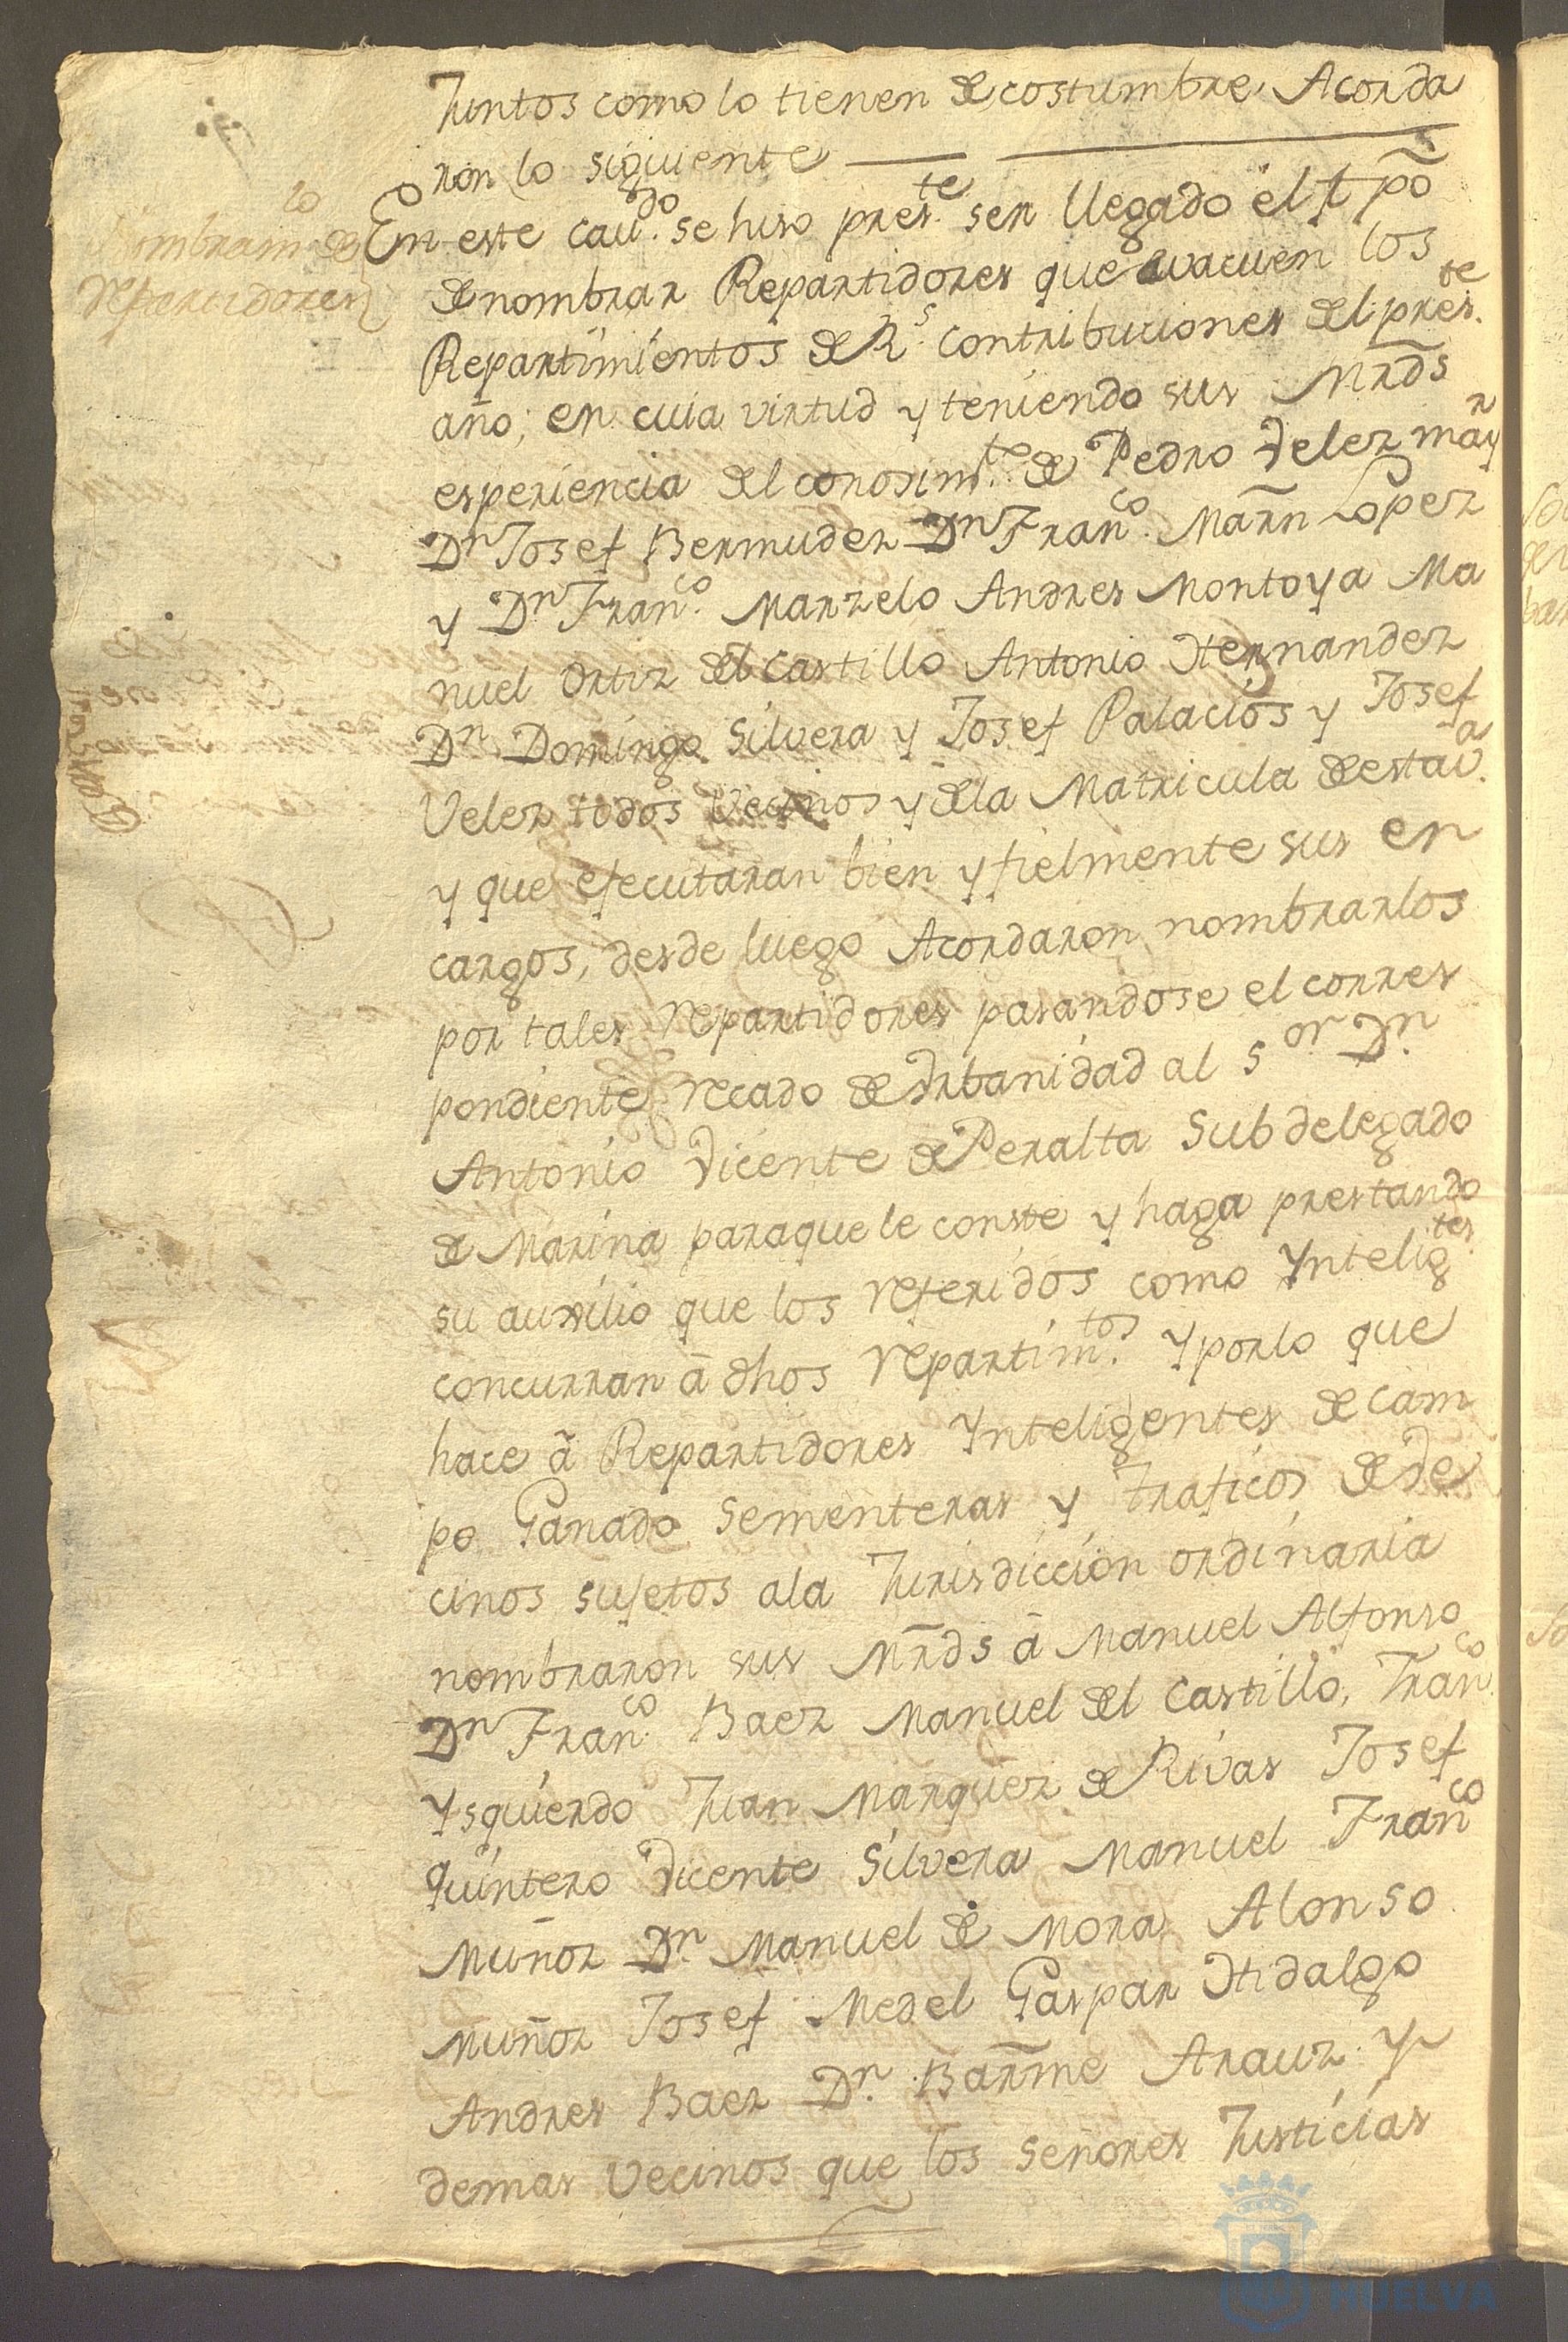 Juntos como lo tienen de costumbre Acorda
ron lo siguiente
Nombram.to de
repartidores
En este cau.do se hiso pres.te ser llegado el tpõ
de nombrar Repartidores que evacuen los
Repartimientos de R.s contribuciones del pres.te
año; en cuia virtud y teniendo sus Mrds
esperiencia del conosim.to de Pedro Velez may.r
Dn Josef Bermudez Dn Fran.co Marñ Lopez
y Dn Fran.co Marzelo Andres Montoya Ma
nuel Ortiz del Castillo Antonio Hernandez
Dn Domingo Silvera y Josef Palacios y Josef
Velez todos Vecinos y de la Matricula de esta v.a
y que efecutaran bien y fielmente sus en
cargos, desde luego Acordaron nombrarlos
por tales repartidores pasandose el corres
pondiente recado de Vrbanidad al S.or Dn
Antonio Vicente de Peralta Subdelegado
de Marina paraque le conste y haga prestando
su auxilio que los referidos como Yntelig.tes
concurran ā dhos repartim.tos y porlo que
hace ā Repartidores Ynteligentes de cam
po Ganado Sementeras y traficos de Ve
cinos sujetos ala Jurisdiccion ordinaria
nombraron sus Mrds ā Manuel Alfonso
Dn Fran.co Baez Manuel del Castillo, Fran.co
Ysquierdo Juan Marquez de Rivas Josef
Quintero Vicente Silvera Manuel Fran.co
Muñoz Dn Manuel de Mora Alonso
Muñoz Josef Medel Gaspar Hidalgo
Andres Baez Dn Barme Arauz y
demas Vecinos que los Señores Justicias
Ayuntamiento
HUELVA